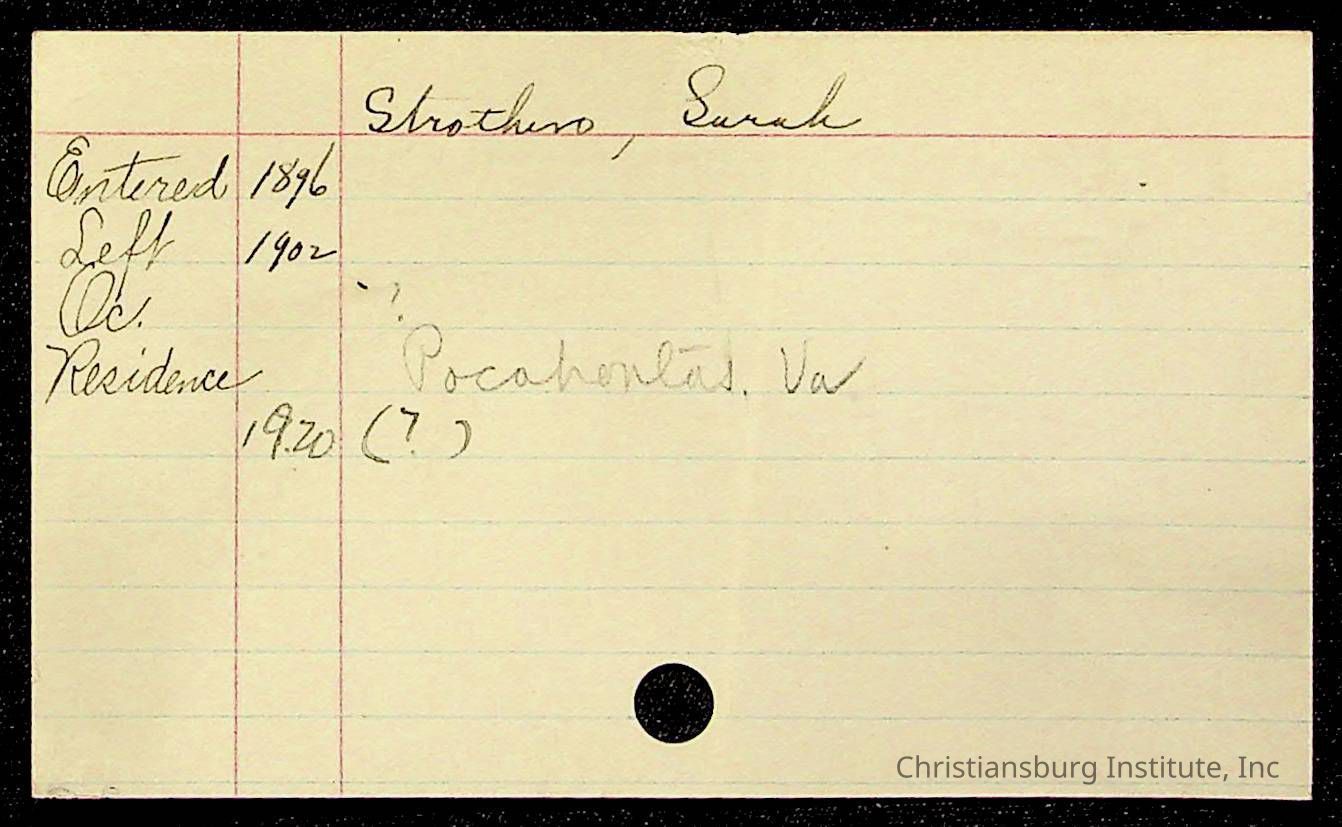 Strothers, Sarah
Entered 1896
Left 1902
Oc. ?
Residence Pocahontas. Va
1920 (?)
Christiansburg Institute, Inc